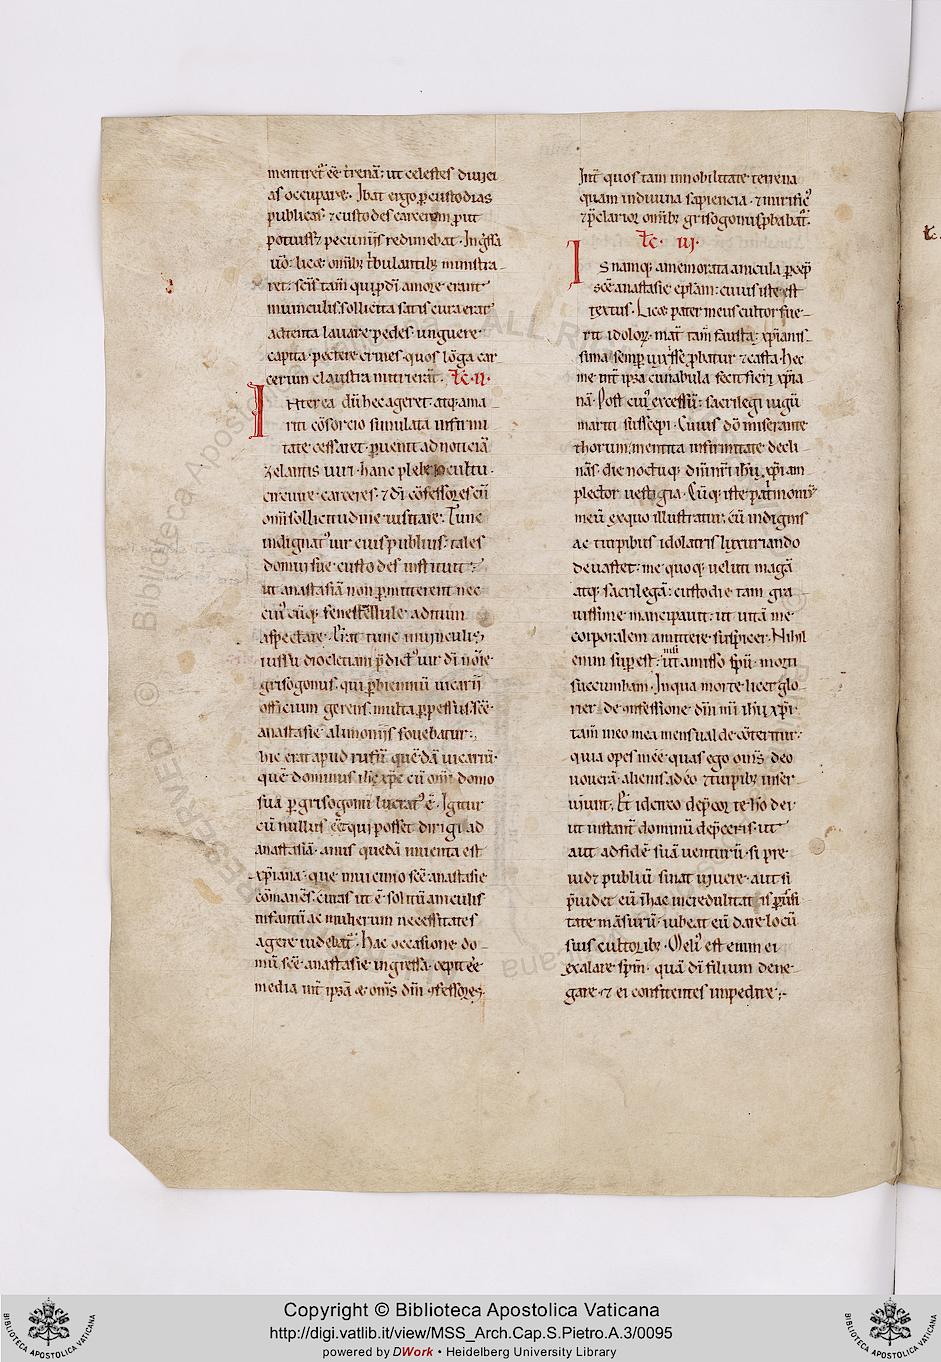 mentiret᷒ eē t̓renā: ut celestes diuici
as occuparet. Ibat ergo ꝑ custodias
publicas ⁊ custodes carcerum ꝓut
potuiss; pecuniis redimebat. Ing̃ssa
u̓o: licet om̄ib; t̓bulantib; ministra
ret: sc̄is tam̄ qui ꝓ dī amore erant
in uinculis: sollicita satis cura erat
actenta lauare pedes. unguere
capita. pectere crines. quos lōga car
cerum claustra nutrierāt. Lc̄. II.
INterea dū hec ageret. atq; ama
riti cōsorcio simulata infirmi
tate cessaret. ꝑuenit ad noticiā
zelantis uiri. hanc plebeio cultu.
circuire carceres. ⁊ dī cōfessores cū
om̄i sollicitudine uisitare. Tunc
indignat᷒ uir eius publius: tales
domui sue custodes instituit.
ut anastasiā non ꝑmitterent nec
cui᷒cūq; fenestellule aditum
aspectare. Erat tunc in uinculis
iussu diocletiani p̄dict᷒ uir dī noīe
grisogonus. qui ꝑ bienniū uicarii
officium gerens. multa ꝑpessus. sc̄e
anastasie alimoniis fouebatur.
hic erat apud rufū quēdā uicariū.
quē dominus ih̄c xp̄c cū om̄i domo
sua ꝑ grisogonū lucrat᷒ ē. Igitur
cū nullus eēt qui posset dirigi ad
anastasiā. anus quedā inuenta est
xp̄iana. que in uicino sc̄e anastasie
cōmanēs. curas ut ē solitū aniculis
infantiū ac mulierum necessitates
agere uidebat᷒. Hac occasione do
mū sc̄e anastasie ingressa. cepit eē
media int̓ ipsā ⁊ om̄s dn̄i ꝯfessores.
Int̓ quos tam in nobilitate terrena
quam in diuina sapiencia. ⁊ mirific᷒
⁊ p̄clarior om̄ib; grisogonus ꝓbabat᷒.
Lc̄. III.
Is namq; a memorata anicula ꝑcep̄
sc̄e anastasie epl̄am: cuius iste est
textus. Licet pater meus cultor fue
rit idolor̄. mat̓ tam̄ fausta: xp̄ianis
sima semp̄ uixisse ꝓbatur ⁊ casta. hec
me int̓ ipsa cunabula fecit fieri xp̄ia
nā. Post cui᷒ excessū: sacrilegi iugū
mariti suscepi. Cuius dō miserante
thorum. mentita infirmitate decli
nās. die noctuq; dn̄i nr̄i ih̄u xp̄i am
plector uestigia. Cūq; iste pat̓moniū
meū ex quo illustratur. cū indignis
ac turpibus idolatris luxuriando
deuastet: me quoq; ueluti magā
atq; sacrilegā: custodie tam gra
uissime mancipauit. ut uitā me
corporalem amittere suspicer. Nihil
enim suꝑest. nisi ut amisso sp̄u. morti
succumbam. In qua morte licet glo
rier de ꝯfessione dn̄i mī ih̄u xp̄i.
tam̄ in eo mea mens ualde cōteritur.
quia opes meē quas ego om̄s deo
uouerā. alienis a deo ⁊ turpib; inser
uiunt. Et iccirco dep̄cor te hō dei
ut instant̓ dominū dep̄ceris. ut
aut ad fidē suā uenturū si pre
uidet publiū sinat uiuere. aut si
p̄uidet eū ī hac incredulitatis ꝑuersi
tate mansurū. iubeat eū dare locū
suis cultorib;. Meli᷒ est enim ei
exalare sp̄m. quā dī filium dene
gare. ⁊ ei confitentes impedire.
Lc̄.
© Biblioteca Apostolica Vaticana
ALL RIGHTS RESERVED
BIBLIOTECA APOSTOLICA VATICANA
Copyright © Biblioteca Apostolica Vaticana
http://digi.vatlib.it/view/MSS_Arch.Cap.S.Pietro.A.3/0095
powered by DWork • Heidelberg University Library
BIBLIOTECA APOSTOLICA VATICANA